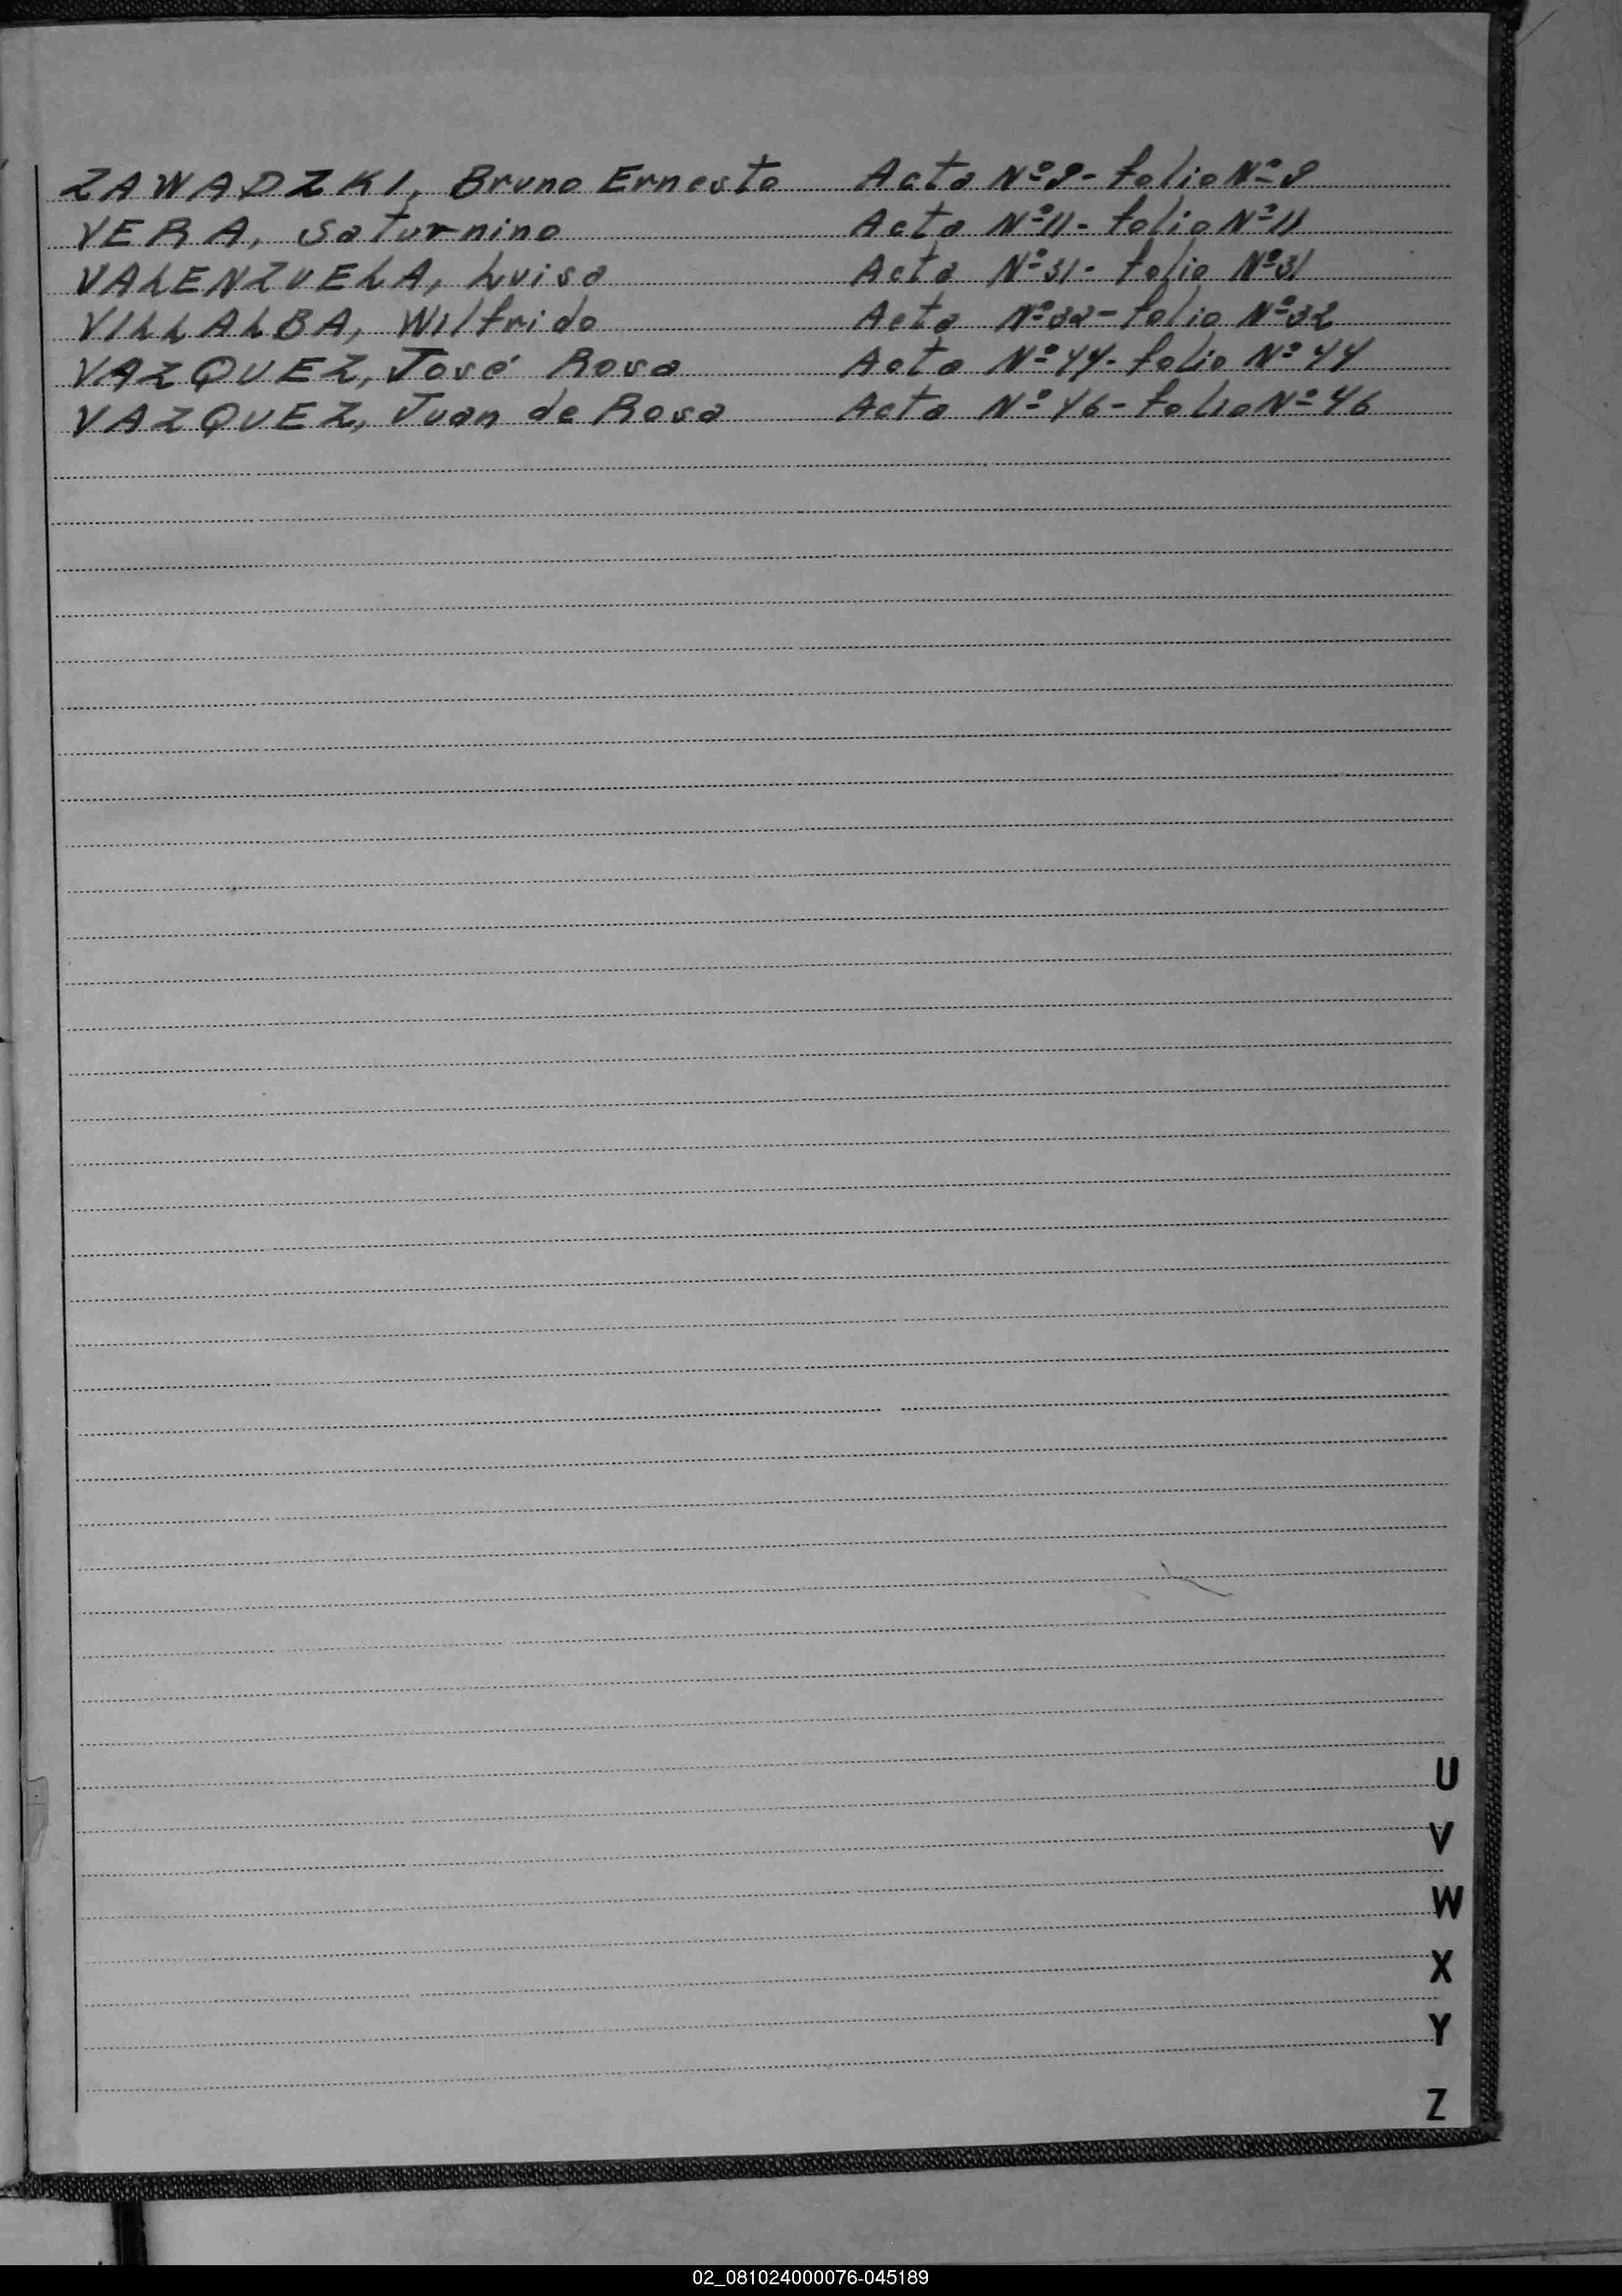 ZAWADZKI, Bruno Ernesto Acta Nº 9 - folio Nº 9
VERA, Saturnino Acta Nº 11 - folio Nº 11
VALENZUELA, Luisa Acta Nº 31 - folio Nº 31
VILLALBA, Wilfrido Acta Nº 32 - folio Nº 32
VAZQUEZ, José Rosa Acta Nº 44 - folio Nº 44
VAZQUEZ, Juan de Rosa Acta Nº 46 - folio Nº 46
U
V
W
X
Y
Z
02_081024000076-045189